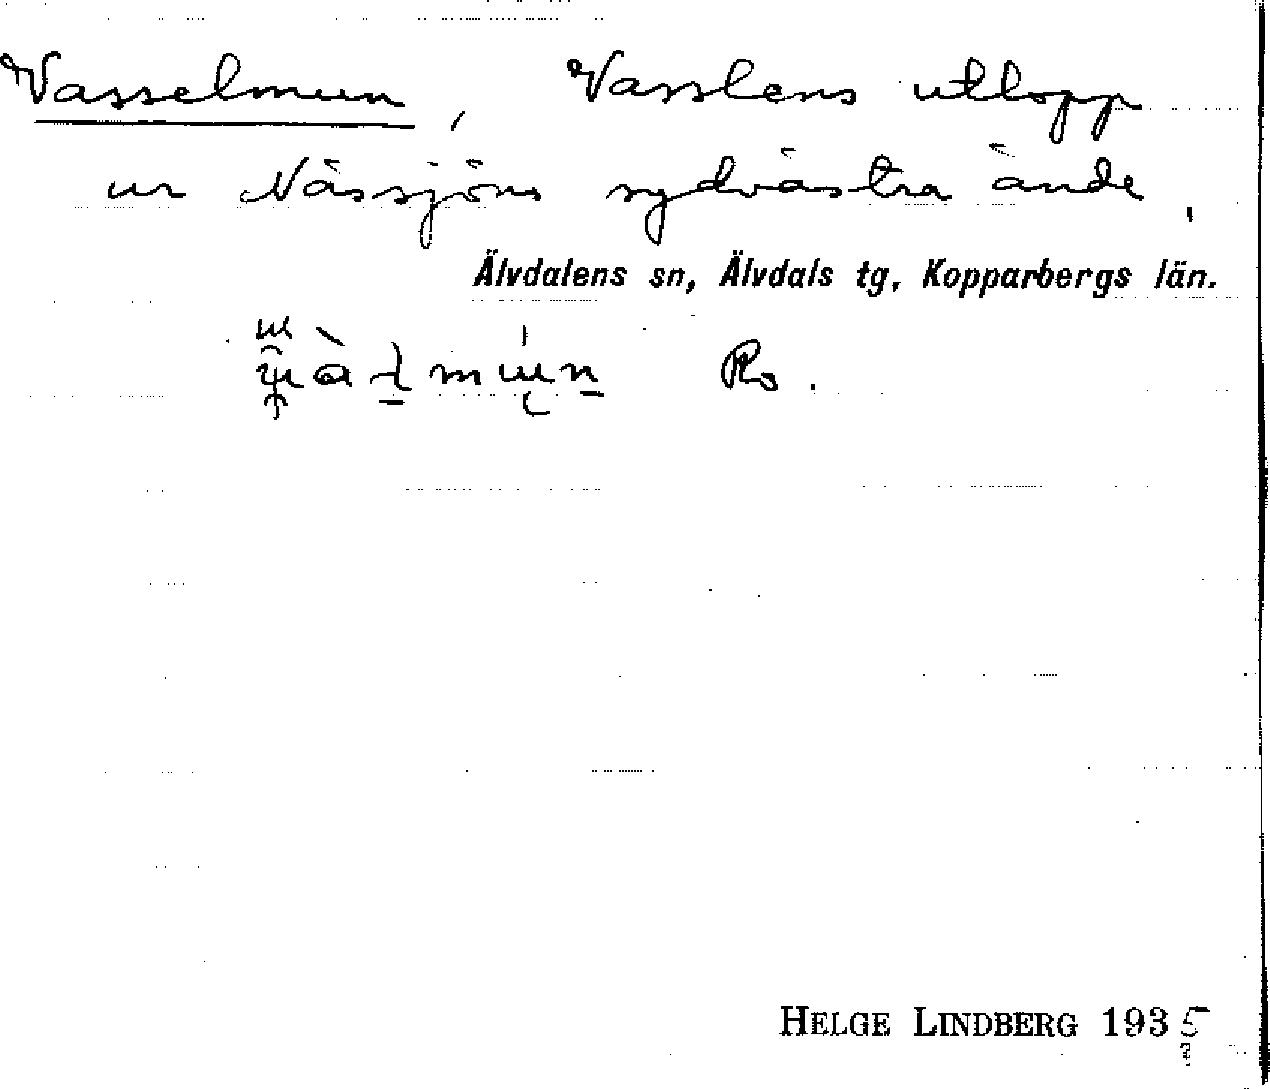 Vasselmun, Vasslens utlopp
ur Nässjöns sydvästra ände,
Älvdalens sn, Älvdals tg, Kopparbergs län.
Ro.
HELGE LINDBERG 1935